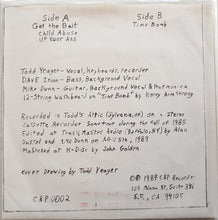 Side A
Got the Bait
Child Abuse
Up Your Ass
Side B
Time Bomb
Todd Yeager - Vocal, Keyboards, recorder
Dave Iron - Bass, Background Vocal
Mike Dunn - Guitar, Background Vocal & Harmonica
12-String Washboard on "Time Bomb" by Kerry Armstrong
Recorded in Todd's Attic (Sylvania, on) on a Stereo
Cassette Recorder Sometime during the Fall of 1985
Edited at Track Master Audio (Buffalo, NY) by Alan
and Mike Dunn on April 5th, 1989
Mastered at K-Disc by John Golden
Cover Drawing by Todd Yeager
© 1989 C&P Records
S.F., CA 94105
C&P 0002